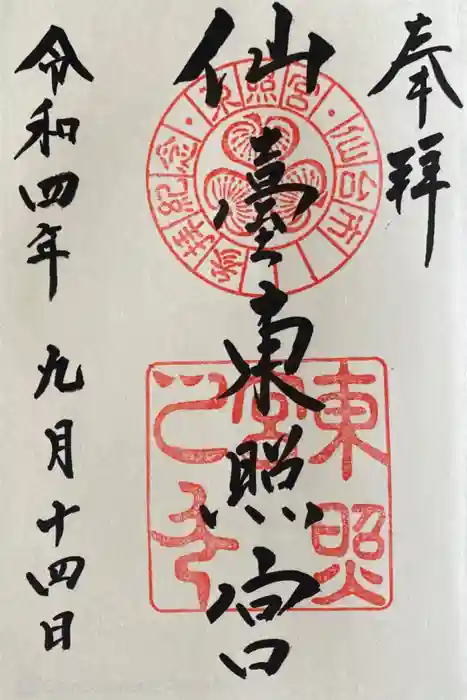 奉拝
仙臺東照宮
令和四年 九月十四日
東照宮・仙台市
参拝紀念
東照宮